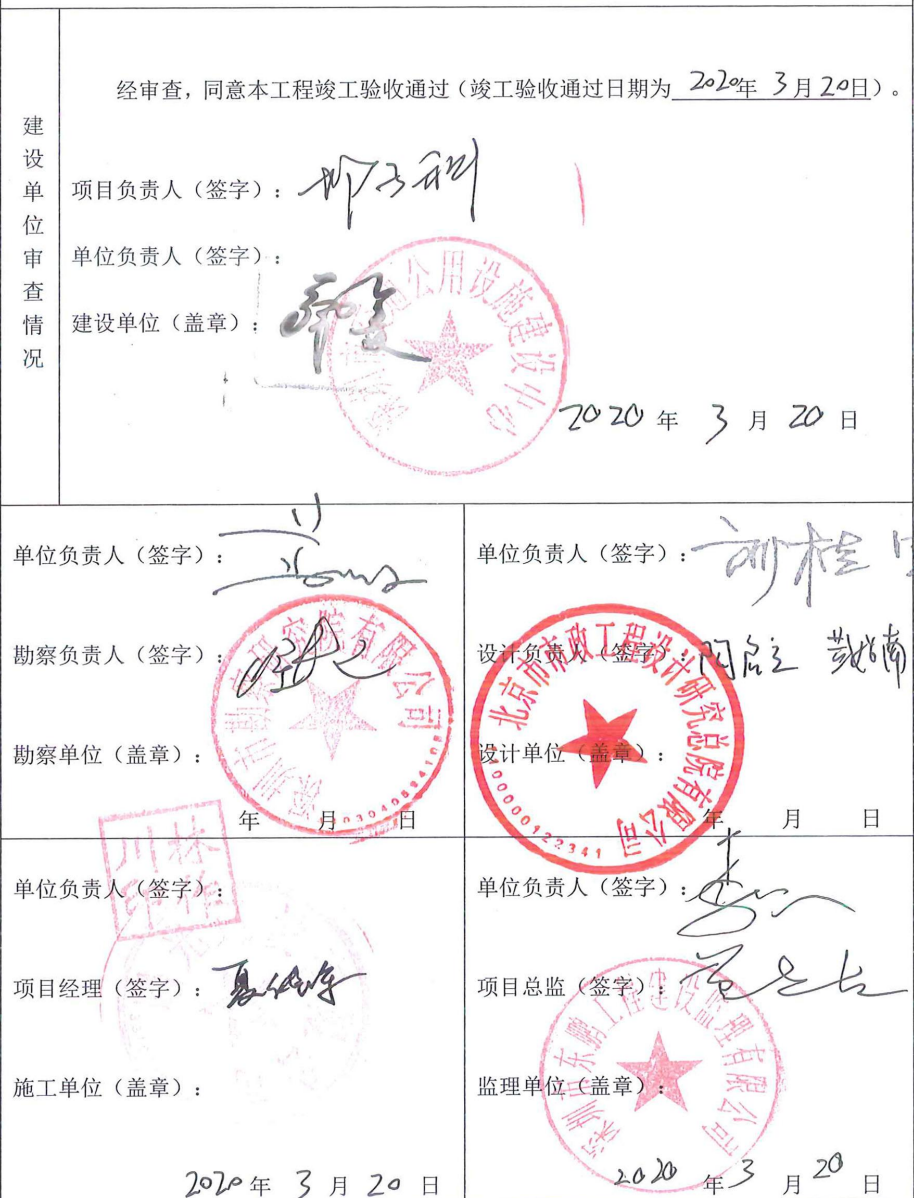 建设单位审查情况
经审查，同意本工程竣工验收通过（竣工验收通过日期为 2020年 3月20日）。
项目负责人（签字）：
单位负责人（签字）：
建设单位（盖章）：
公用设施建设中心
2020 年 3 月 20 日
单位负责人（签字）：
勘察负责人（签字）：
勘察单位（盖章）：
深圳市勘察研究院有限公司
年 月 日
单位负责人（签字）：
设计负责人（签字）：
设计单位（盖章）：
北京市市政工程设计研究总院有限公司
1100000122341
年 月 日
单位负责人（签字）：
项目经理（签字）：
施工单位（盖章）：
2020 年 3 月 20 日
单位负责人（签字）：
项目总监（签字）：
监理单位（盖章）：
深圳市东鹏工程建设监理有限公司
2020 年 3 月 20 日